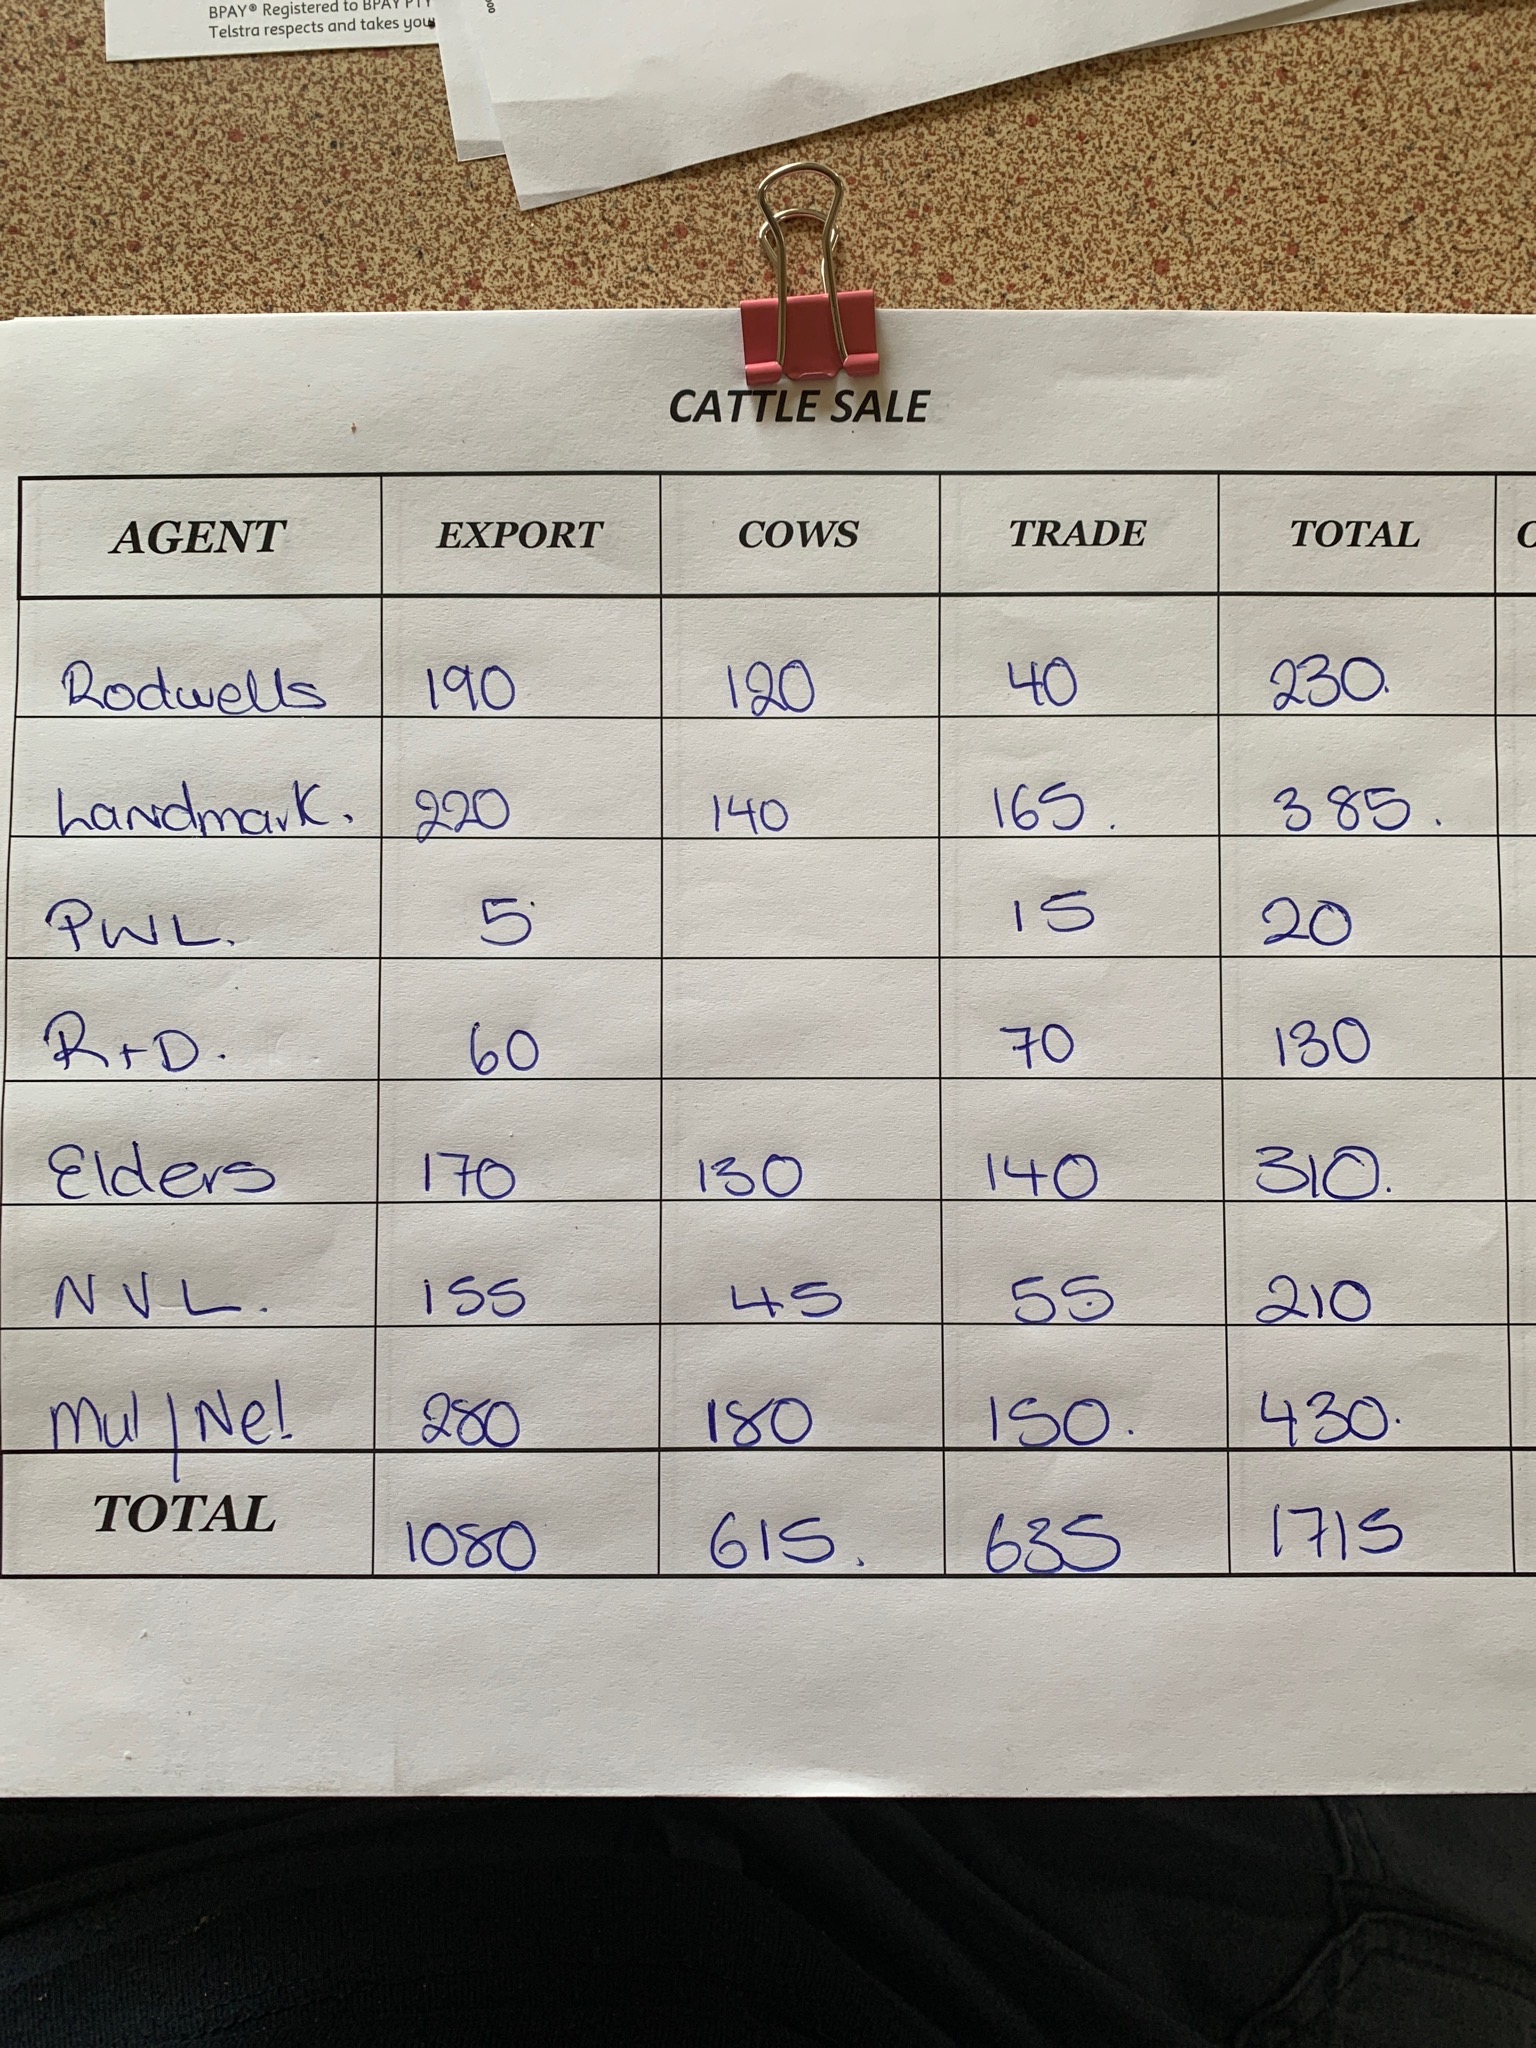 BPAY® Registered to BPAY PTY
Telstra respects and takes your
CATTLE SALE
AGENT EXPORT COWS TRADE TOTAL
Rodwells 190 120 40 230.
Landmark. 220 140 165. 385.
PWL. 5 15 20
R+D. 60 70 130
Elders 170 130 140 310.
NVL. 155 45 55 210
Mul/Nel 280 180 150. 430.
TOTAL 1080 615. 635 1715